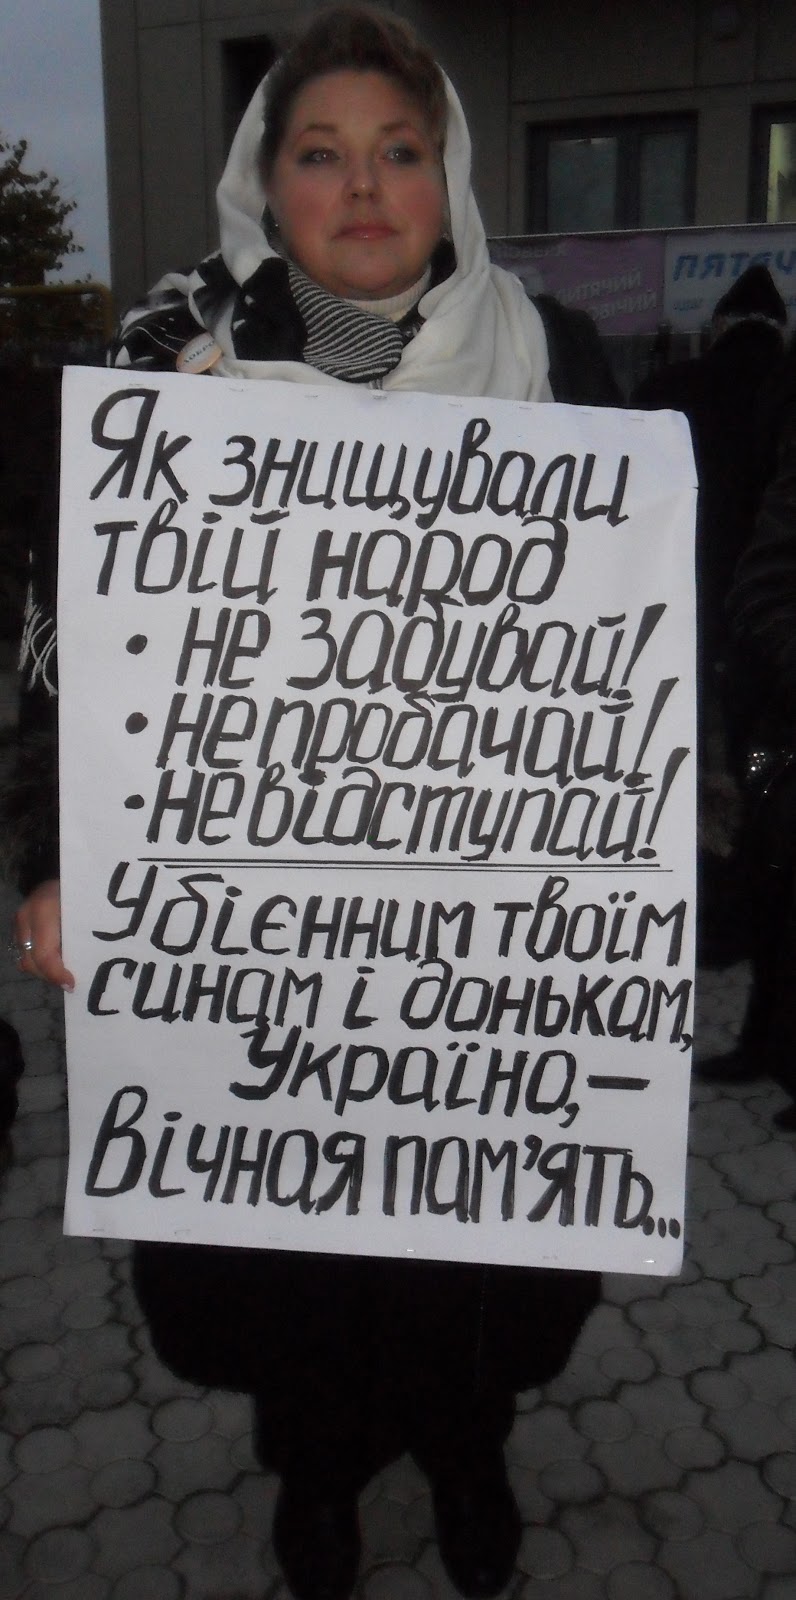 Як знищували
твій народ
• не забувай!
• не пробачай!
• не відступай!
Убієнним твоїм
синам і донькам,
Україно, –
Вічная пам'ять...